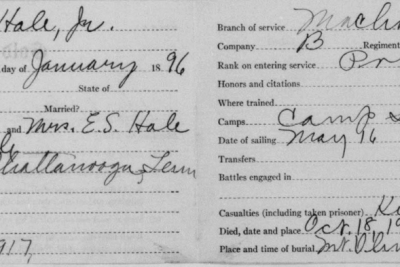 Hale, Jr.
day of January 1896
State of
Married?
and Mrs. E. S. Hale
Chattanooga, Tenn
917
Branch of service Machin
Company B Regiment
Rank on entering service Pr
Honors and citations
Where trained
Camps Camp S
Date of sailing May 16
Transfers
Battles engaged in
Casualties (including taken prisoner) K
Died, date and place Oct. 18, 19
Place and time of burial Mt. Oliv